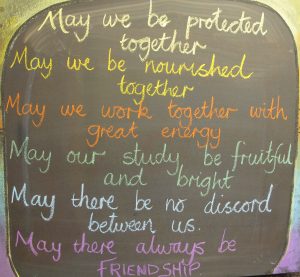 May we be protected
together
May we be nourished
together
May we work together with
great energy
May our study be fruitful
and bright
May there be no discord
between us.
May there always be
FRIENDSHIP